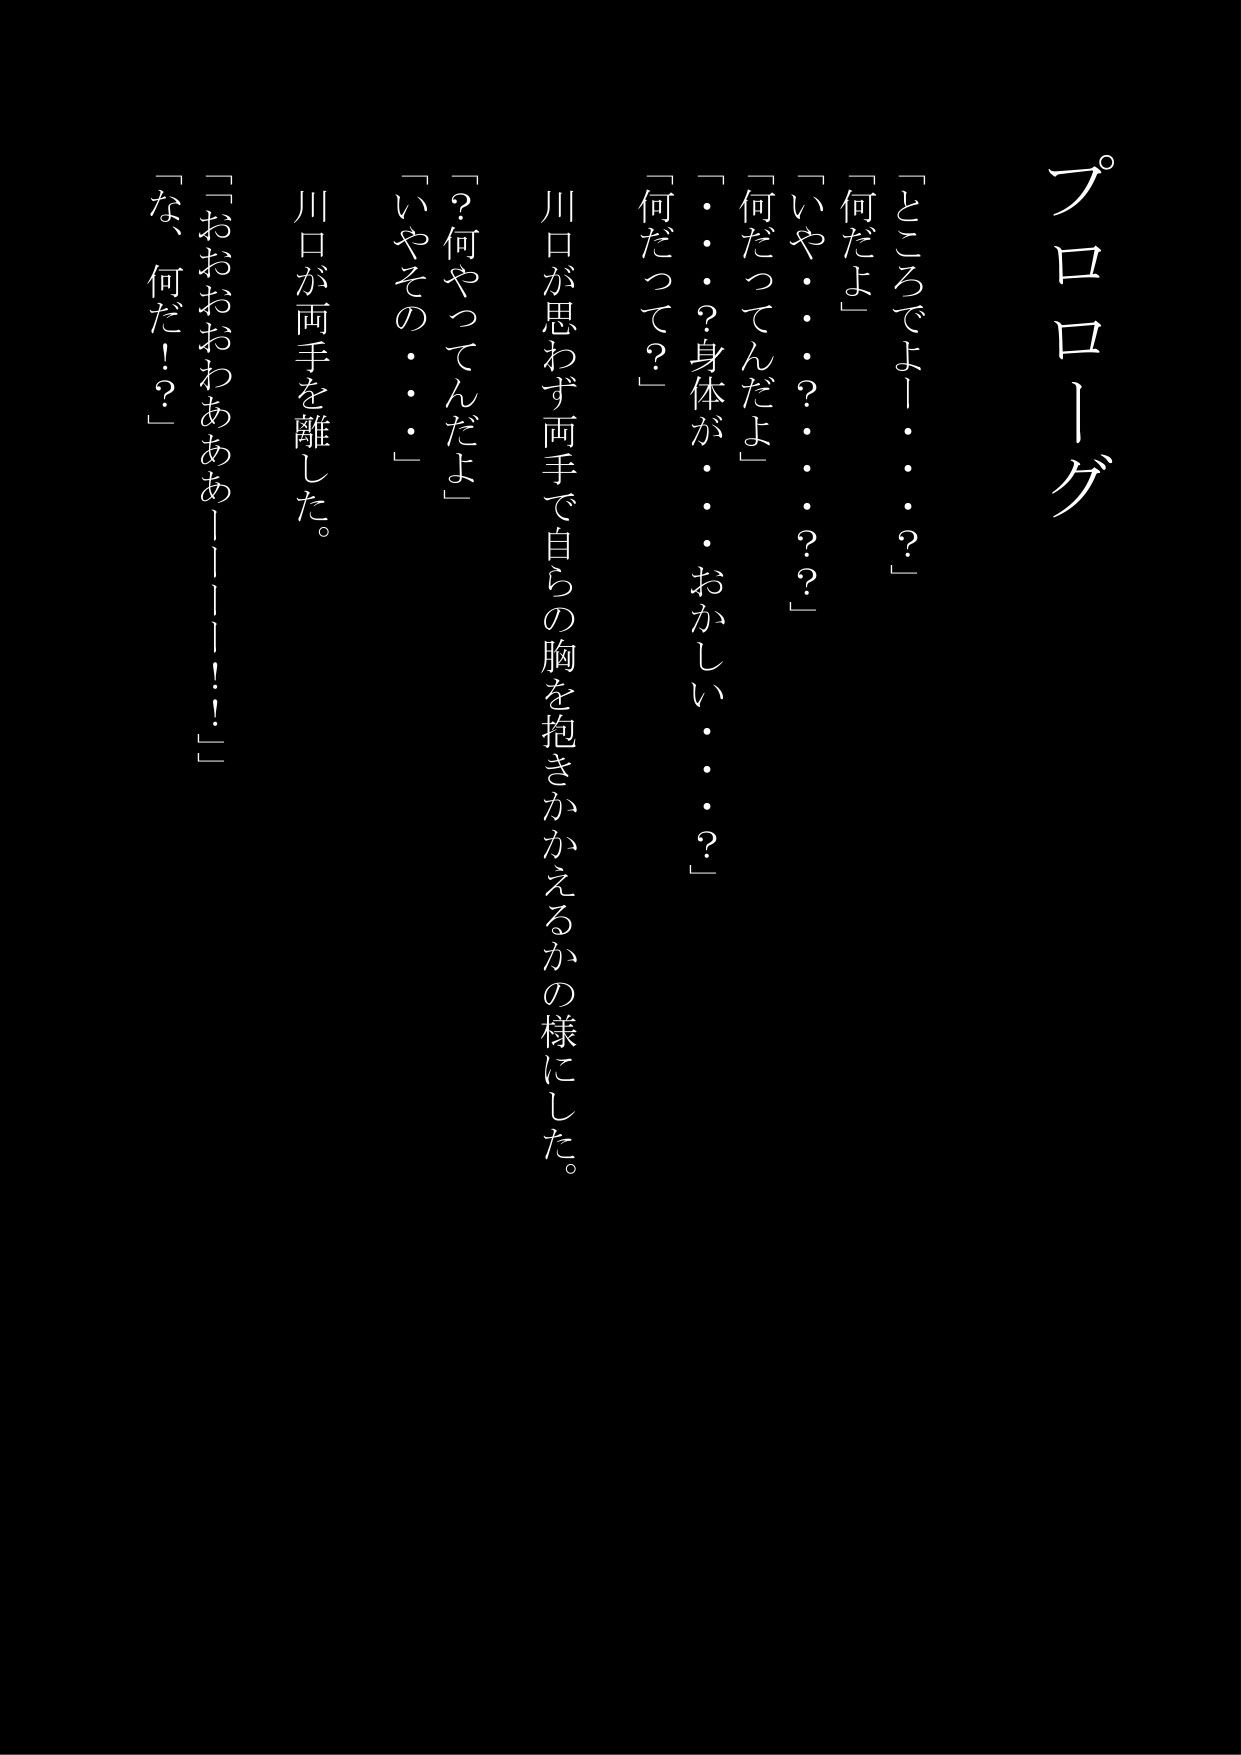 プロローグ
「ところでよー・・・？」
「何だよ」
「いや・・・？・・・？？」
「何だってんだよ」
「・・・？身体が・・・おかしい・・・？」
「何だって？」
川口が思わず両手で自らの胸を抱きかかえるかの様にした。
「？何やってんだよ」
「いやその・・・」
川口が両手を離した。
「「おおおおわあああーーーー！！」」
「な、何だ！？」